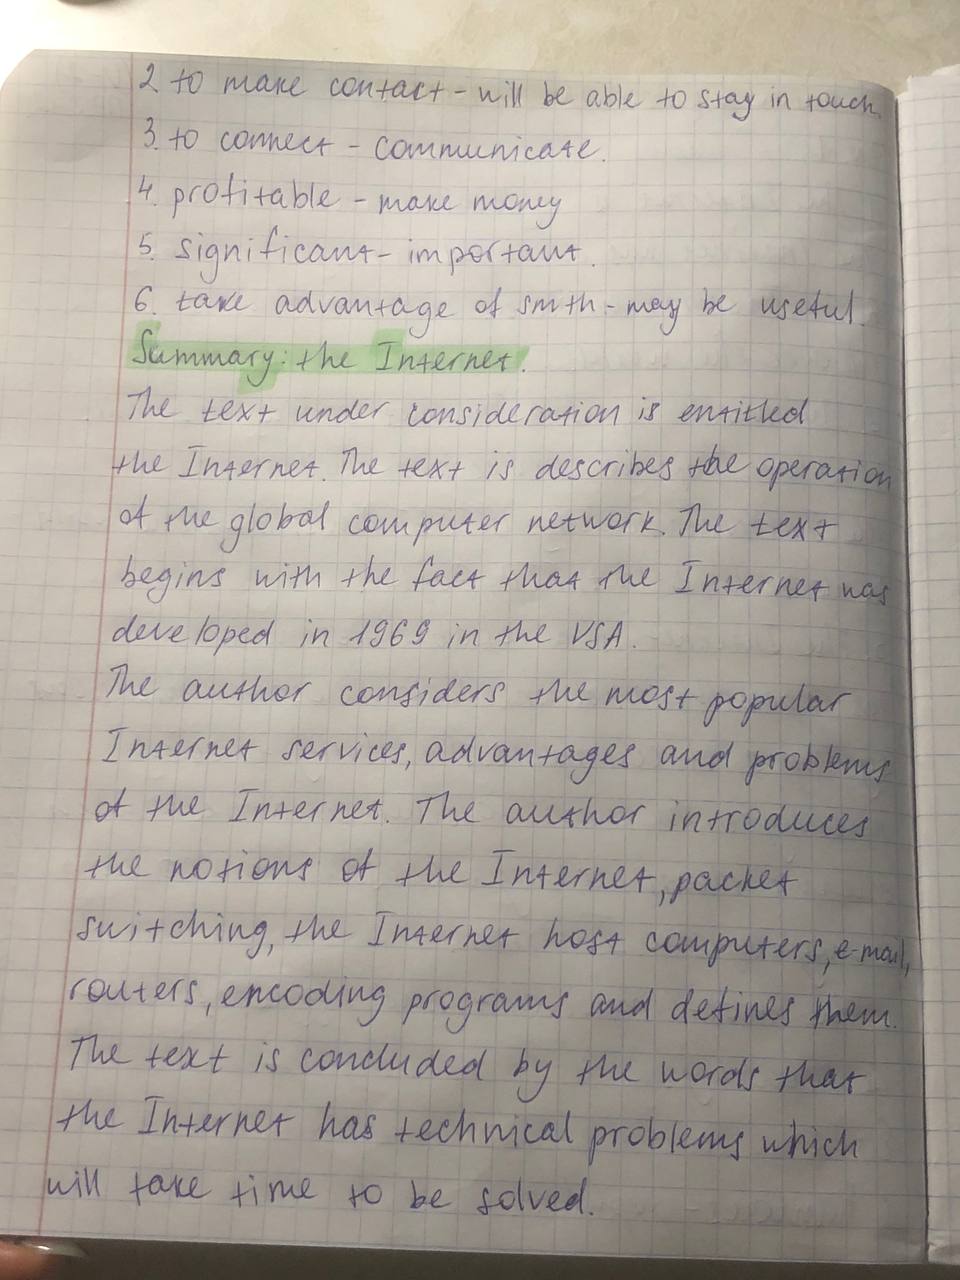 2 to make contact - will be able to stay in touch.
3. to connect - communicate.
4. profitable - make money
5. significant - important.
6. take advantage of smth - may be useful.
Summary: the Internet.
The text under consideration is entitled
the Internet. The text is describes the operation
of the global computer network. The text
begins with the fact that the Internet was
developed in 1969 in the USA.
The author considers the most popular
Internet services, advantages and problems
of the Internet. The author introduces
the notions of the Internet, packet
switching, the Internet host computers, e-mail,
routers, encoding programs and defines them.
The text is concluded by the words that
the Internet has technical problems which
will take time to be solved.